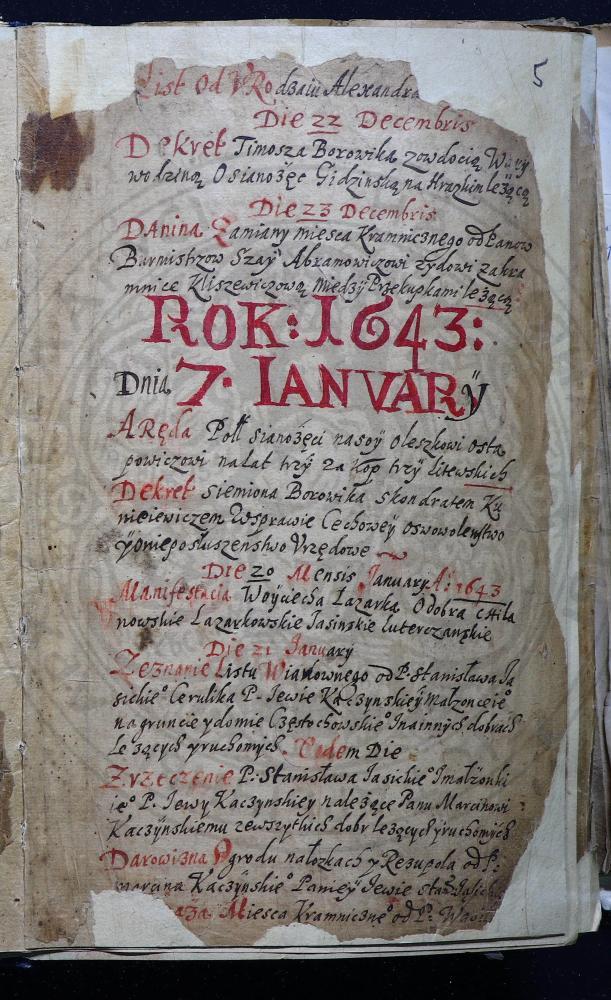 5
List Od VRodzaiu Alexandra
Die 22 Decembris
Dekret Timosza Borowika zowdocią Wary
wodziną O sianożęc Gidzinską na Hrazkim leżącą
Die 23 Decembris
DANina Zamiany miesca Kramnicznego od Panow
Burmistrzow Szaÿ Abramowiczowi żydowi za kra
mnice Kliszewiczową Między Przekupkami leżącą
ROK: 1643:
Dnia 7. IANVARÿ
ARęda Poll sianożęci na soÿ Oleszkowi Osta
powiczowi na lat trzÿ za kop trzÿ litewskich
Dekret Siemiona Borowika skondratem Ku
nieiewiczem Wsprawie Cechoweÿ oswowolenstwo
ÿ onieposłuszenstwo Vrzędowe
Die 20 Mensis January Aº 1643
Manifestacia Woyciecha Łazarka O dobra Chila
nowskie Lazarkowskie Jasinskie Luterczanskie
Die 21 January
Zeznanie Listu Wianownego od P. Stanisława Ja
sichieº Cerulika P. Jewie Kaczynskieÿ małzonce ieº
na gruncie y domie Częstochowskieº Inainnÿch dobrach
Leżących y ruchomych. Eodem Die
Zrzeczenie P. Stanisława Iasichieº Imałżonki
ieº P. Jewy Kaczynskiey należące Panu Marcinowi
Kaczÿnskiemu zewszytkich dobr leżących y ruchomych
Darowizna Ogrodu nałozkach y Rezupola od P:
Marcina Kaczÿnskieº Panieÿ Jewie Sta:
Miesca Kramniczneº od P: